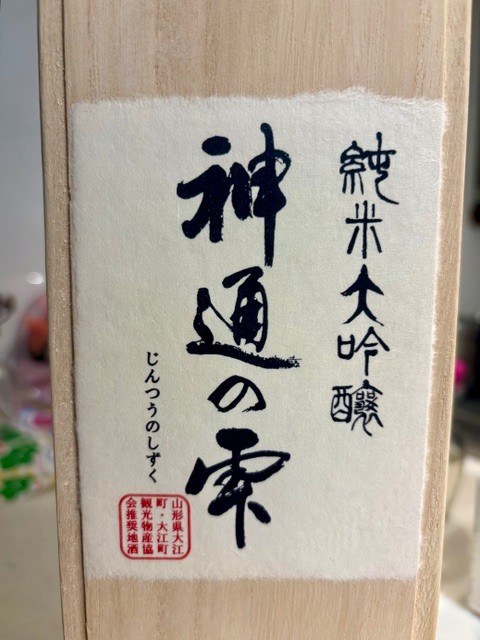 純米大吟醸
神通の雫
じんつうのしずく
山形県大江
町・大江町
観光物産協
会推奨地酒